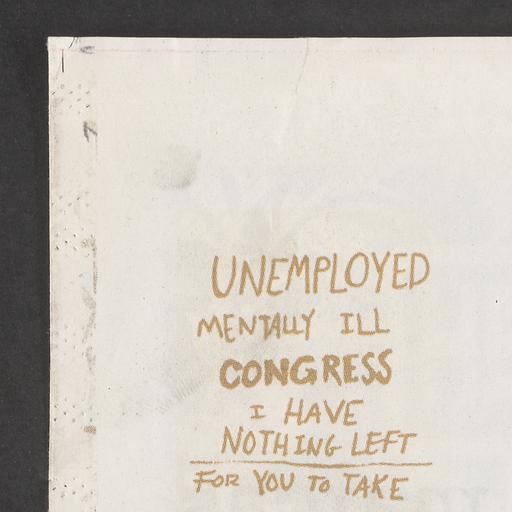 UNEMPLOYED
MENTALLY ILL
CONGRESS
I HAVE
NOTHING LEFT
FOR YOU TO TAKE